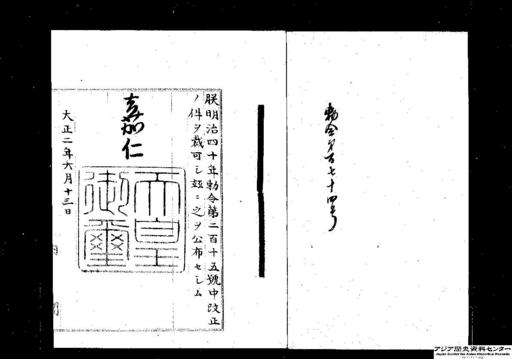 勅令第百七十四号
朕明治四十年勅令第二百十五號中改正
ノ件ヲ裁可シ茲ニ之ヲ公布セシム
嘉仁
天皇御璽
大正二年六月十三日
アジア歴史資料センター
Japan Center for Asian Historical Records